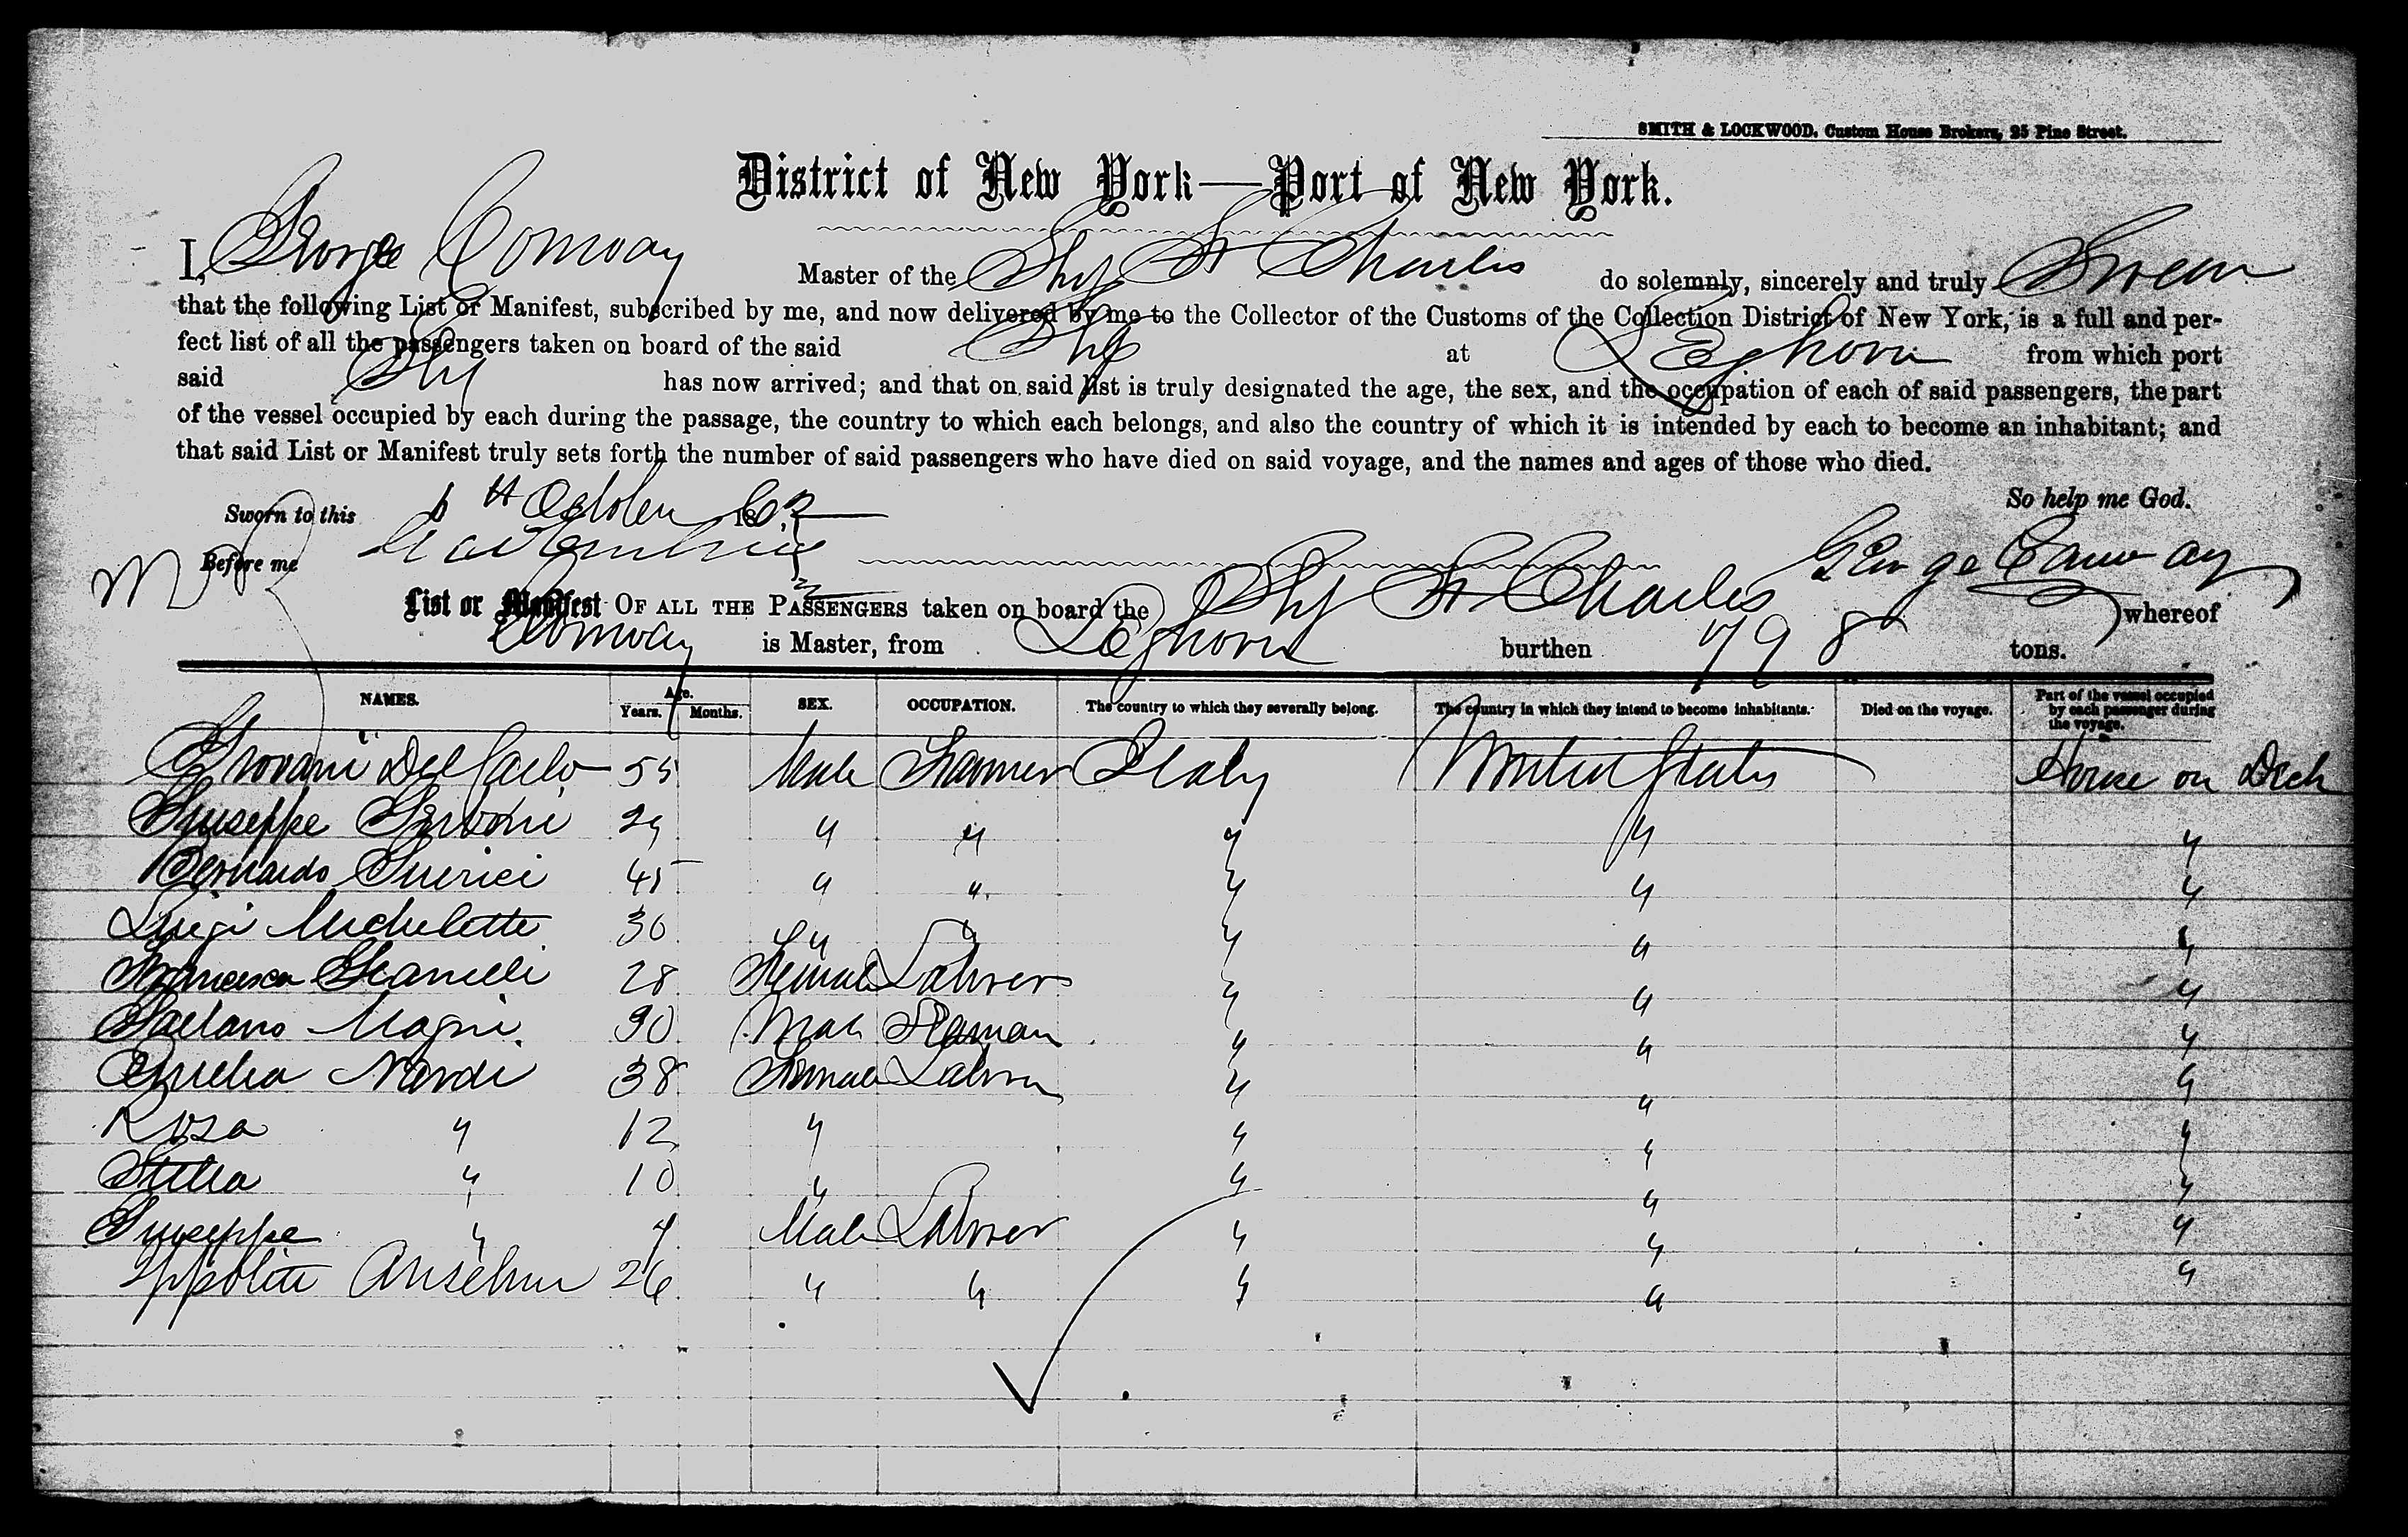 SMITH & LOCKWOOD, Custom House Brokers, 25 Pine Street.
District of New York—Port of New York.
I, George Conway Master of the Ship St Charles do solemnly, sincerely and truly Swear
that the following List or Manifest, subscribed by me, and now delivered by me to the Collector of the Customs of the Collection District of New York, is a full and per-
fect list of all the passengers taken on board of the said Ship at Leghorn from which port
said Ship has now arrived; and that on said list is truly designated the age, the sex, and the occupation of each of said passengers, the part
of the vessel occupied by each during the passage, the country to which each belongs, and also the country of which it is intended by each to become an inhabitant; and
that said List or Manifest truly sets forth the number of said passengers who have died on said voyage, and the names and ages of those who died.
So help me God.
Sworn to this 6 th October 18
Before me
George Conway
List or Manifest OF ALL THE PASSENGERS taken on board the Ship St Charles whereof
Conway is Master, from Leghorn burthen 798 tons.
NAMES. Age. Years. Months. SEX. OCCUPATION. The country to which they severally belong. The country in which they intend to become inhabitants. Died on the voyage. Part of the vessel occupied by each passenger during the voyage.
Giovani Del Carlo 55 Male Farmer Italy United States House on Deck
Giuseppe 29 " " " " "
Bernardo 45 " " " " "
Luigi Micheletti 30 " " " " "
Francesca 28 Female Labrer " " "
Gaetano Magni 30 Male Seaman " " "
Nardi 38 Female Labrer " " "
Rosa " 12 " " " "
Stella " 10 " " " "
Giuseppe " 4 Male Labrer " " "
Ippolito Anselmi 26 " " " " "